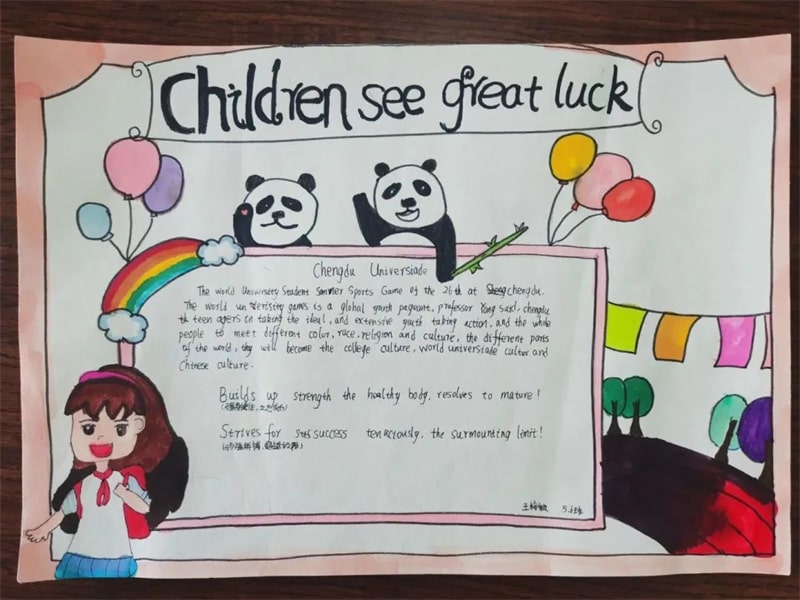 Children see great luck
Chengdu Universiade
The world University Student Summer Sports Game of the 26th at chengdu.
The world un versity games is a global youth pageant, professor Yong said, chengdu
th teen agers in taking the ideal, and extensive youth taking action, and the whole
people to meet different color, race, religion and culture, the different parts
of the world, they will become the college culture, world universiade cultur and
Chinese culture.
Builds up strength the healthy body, resolves to mature!
Strives for success tenaciously, the surmounting limit!
5.6班